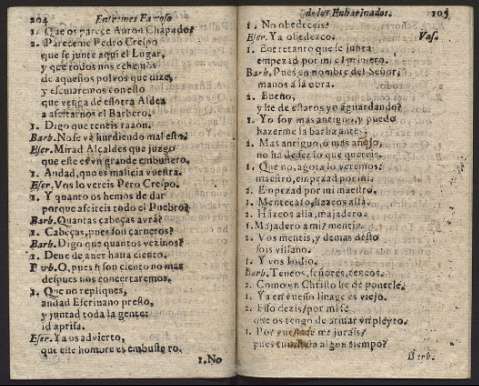 204 Entremes Famoso
1. Que os parece Anton Chapado?
2. Pareceme Pedro Crespo,
que se junte aqui el Lugar,
y que todos nos echemos
de aquellos polvos que dize,
y escusaremos con esto
que venga de essotra Aldea
a afeitarnos el Barbero.
1. Digo que teneis razon.
Barb. No se va hurdiendo mal esto.
Escr. Mirad Alcaldes que juzgo
que este es vn grande embustero.
1. Andad, que es malicia vuestra.
Escr. Vos lo vereis Pero Crespo.
2. Y quanto os hemos de dar
porque afeiteis todo el Pueblo?
Barb. Quantas cabeças avrá?
2. Cabeças, pues son carneros?
Barb. Digo que quantos vezinos?
2. Deve de aver hasta ciento.
Barb. O, pues si son ciento no mas
despues nos concertaremos.
2. Que no repliques,
andad Escrivano presto,
y juntad toda la gente:
id aprisa.
Escr. Ya os advierto,
que este hombre es embustero.
1. No
de los Enharinados. 105
1. No obedeceis?
Escr. Ya obedezco. Vas.
1. Entretanto que se junta
empezad por mi el primero.
Barb. Pues en nombre del Señor,
manos á la obra.
2. Bueno,
y he de estaros yo aguardando?
1. Yo soy mas antiguo, y puedo
hazerme la barba antes.
1. Mas antiguo, ó mas añejo,
no ha de ser lo que quereis.
1. Que no, agora lo veremos:
maestro, empezad por mi.
2. Empezad por mi maestro.
1. Mentecato, hazeos allá.
2. Hazeos allá, majadero.
1. Majadero a mi? mentis.
2. Vos mentis, y demas desto
sois villano.
1. Y vos Iudio.
Barb. Teneos, señores, teneos.
2. Como en Christo he de ponerle.
1. Ya en vuestro linage es viejo.
2. Esso dezis? por mi fé
que os tengo de armar vn pleyto.
1. Por
pues algun tiempo?
Barb.